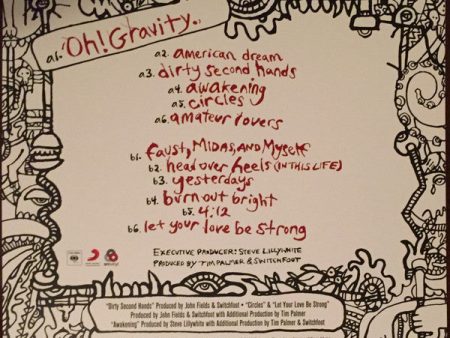 a1. Oh! Gravity.
a2. american dream
a3. dirty second hands
a4. awakening
a5. circles
a6. amateur lovers
b1. faust, MIDAS, AND Myself
b2. head over heels (IN THIS LIFE)
b3. yesterdays
b4. burn out bright
b5. 4:12
b6. let your love be strong
EXECUTIVE PRODUCER: STEVE LILLYWHITE
PRODUCED BY TIM PALMER & SWITCHFOOT
"Dirty Second Hands" Produced by John Fields & Switchfoot • "Circles" & "Let Your Love Be Strong"
Produced by John Fields & Switchfoot with Additional Production by Tim Palmer
"Awakening" Produced by Steve Lillywhite with Additional Production by Tim Palmer & Switchfoot